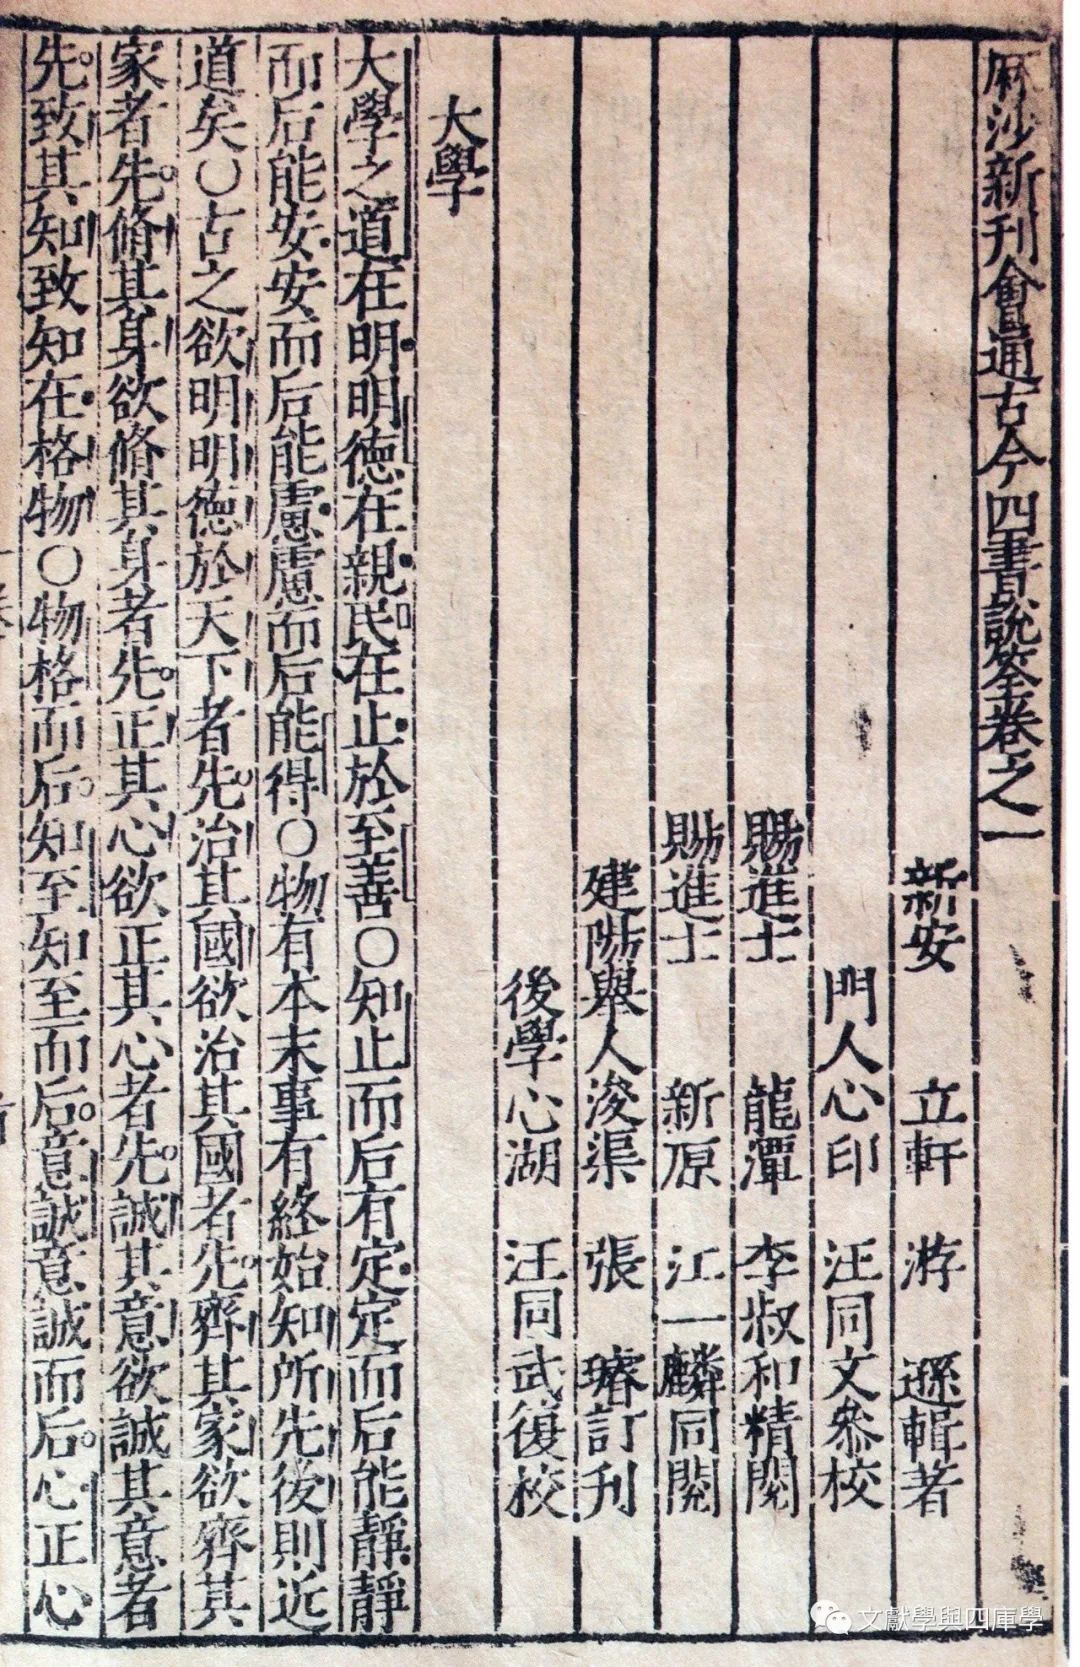 麻沙新刊會通古今四書說筌卷之一
新安 立軒 游 遜輯著
門人心印 汪同文叅校
賜進士 龍潭 李叔和精閱
賜進士 新原 江一麟同閱
建陽舉人浚渠 張 璿訂刊
後學心湖 汪同武復校
大學
大學之道在明明德在親民在止於至善○知止而后有定定而后能靜靜
而后能安安而后能慮慮而后能得○物有本末事有終始知所先後則近
道矣○古之欲明明德於天下者先治其國欲治其國者先齊其家欲齊其
家者先脩其身欲脩其身者先正其心欲正其心者先誠其意欲誠其意者
先致其知致知在格物○物格而后知至知至而后意誠意誠而后心正心
文獻學與四庫學